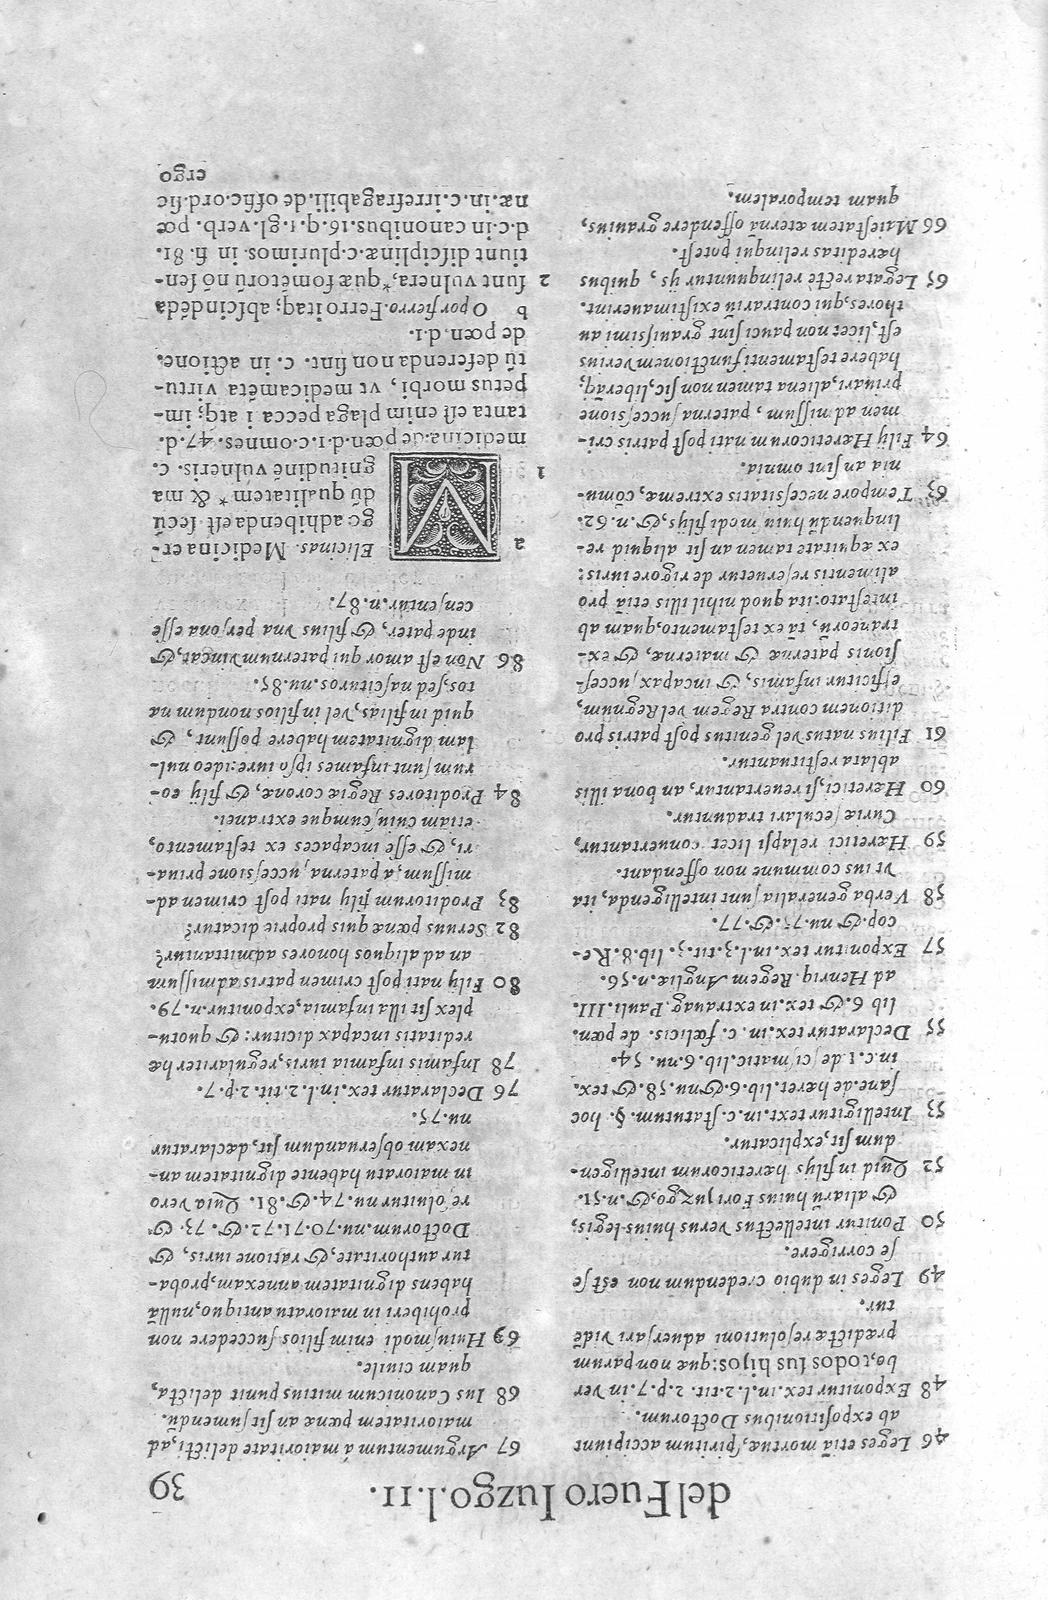 del Fuero Iuzgo.l.II. 39
46 Leges etiā mortuæ, spiritum accipiunt
ab expositionibus Doctorum.
48 Exponitur tex. in. l. 2. tit. 2. p. 7. in ver
bo, todos sus hijos: quæ non parum
prædictæ resolutioni aduersari vidē
tur.
49 Leges in dubio credendum non est se
se corrigere.
50 Ponitur intellectus verus huius legis,
& aliarū huius Fori juzgo, &.n.51.
52 Quid in filijs hæreticorum intelligen-
dum sit, explicatur.
53 Intelligitur text. in. c. statutum. §. hoc
sane. de hæret. lib. 6. & nu. 58. & tex.
in. c. 1. de scismatic. lib. 6. nu. 54.
55 Declaratur tex. in. c. fœlicis. de pœn.
lib 6. & tex. in extrauag. Pauli. III.
ad Henriq. Regem Angliæ. n. 56.
57 Exponitur tex. in. l. 3. tit. 3. lib. 8. Re-
cop. & nu. 75. &. 77.
58 Verba generalia sunt intelligenda, ita,
vt ius commune non offendant.
59 Hæretici relapsi licet conuertantur,
Curiæ seculari traduntur.
60 Hæretici, si reuertantur, an bona illis
ablata restituantur.
61 Filius natus vel genitus post patris pro
ditionem contra Regem vel Regnum,
efficitur infamis, & incapax succes-
sionis paternæ & maternæ, & ex-
traneorū, tā ex testamento, quam ab
intestato: ita quod nihil illis etiā pro
alimentis reseruetur de rigore iuris:
ex æquitate tamen an sit aliquid re-
linquendū huiusmodi filijs, &. n. 62.
63 Tempore necessitatis extremæ, cōmu-
nia an sint omnia.
64 Filij Hæreticorum nati post patris cri-
men admissum, paterna successione
priuari, aliena tamen non sic, liberāq;
habere testamenti functionem verius
est, licet non pauci sint grauissimi au
thores, qui contrariū existimauerint.
65 Legata rectè relinquuntur ijs, quibus
hæreditas relinqui potest.
66 Maiestatem æternā offendere grauius,
quam temporalem.
67 Argumentum à maioritate delicti, ad
maioritatem pœnæ an sit sumendū.
68 Ius Canonicum mitius punit delicta,
quam ciuile.
69 Huiusmodi enim filios succedere non
prohiberi in maioratu antiquo, nullā
habens dignitatem annexam, proba-
tur authoritate, & ratione iuris, &
Doctorum. nu. 70. 71. 72. &. 73. &
resoluitur nu. 74. &. 81. Quia vero
in maioratu habente dignitatem an-
nexam obseruandum sit, dæclaratur
nu. 75.
76 Declaratur tex. in. l. 2. tit. 2. p. 7.
78 Infamis infamia iuris, regulariter hæ
reditatis incapax dicitur: & quotu-
plex sit illa infamia, exponitur. n. 79.
80 Filij nati post crimen patris admissum
an ad aliquos honores admittantur?
82 Seruus pœnæ quis proprie dicatur?
83 Proditorum filij nati post crimen ad-
missum, à paterna successione priua-
ri, & esse incapaces ex testamento,
etiam cuiuscumque extranei.
84 Proditores Regiæ coronæ, & filij eo-
rum sunt infames ipso iure: ideo nul-
lam dignitatem habere possunt, &
quid in filias, vel in filios nondum na
tos, sed nascituros. nu. 85.
86 Non est amor qui paternum vincat, &
inde pater, & filius vna persona esse
censentur. n. 87.
a AElicinas. Medicina er-
go adhibenda est secū
dū qualitatem * & ma
1 gnitudinē vulneris. c.
medicina. de pœn. d. 1. c. omnes. 47. d.
tanta est enim plaga peccati atq; im-
petus morbi, vt medicamēta virtu-
tū deferenda non sint. c. in actione.
de pœn. d. 1.
b O por fierro. Ferro itaq; abscindēda
2 sunt vulnera, * quæ fomētorū nō sen-
tiunt disciplinæ. c. plurimos. in fi. 81.
d. c. in canonibus. 16. q. 1. gl. verb. pœ
næ. in. c. irrefragabili. de offic. ord. sic
ergo